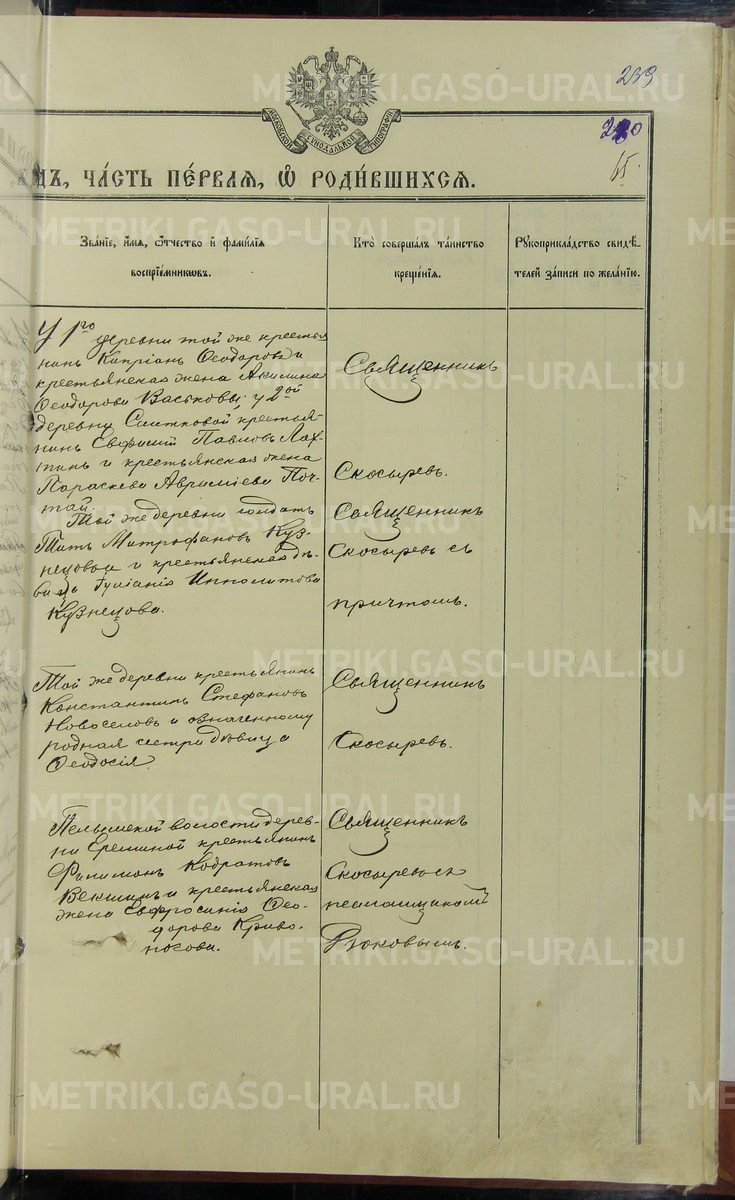 239
65
МОСКОВСКОЙ СѴНОДАЛЬНОЙ ТИПОГРАФІИ
ЧА́СТЬ ПЕ́РВАЯ, Ѡ҆ РОДИ́ВШИХСЯ.
Зва́нїе, и҆́мя, ѻ҆́тчество и҆ фами́лїя
воспрїе́мниковъ.
Кто̀ соверша́лъ та́инство
креще́нїя.
Рꙋкоприкла́дство свидѣ́-
телей за́писи по жела́нїю.
У 1го
деревни той же крестья
нинъ Капріонъ Ѳеодоровъ и
крестьянская жена Акилина
Ѳеодорова Васькова; у 2ой
деревни крестья
нинъ Евфимій Павловъ Лах-
тинъ и крестьянская жена
Параскева Авраміева Поч-
тай.
Священникъ
Скосыревъ.
Той же деревни солдатъ
Титъ Митрофановъ Куз-
нецовъ и крестьянская дѣ-
вица Іуліанія Ипполитова
Кузнецова.
Священникъ
Скосыревъ съ
причтомъ.
Той же деревни крестьянинъ
Константинъ Стефановъ
Новоселовъ и означенному
родная сестра дѣвица
Ѳеодосія.
Священникъ
Скосыревъ.
волости дерев-
ни Ереминой крестьянинъ
Филимонъ Кодратовъ
Векшинъ и крестьянская
жена Евфросинія Ѳео-
дорова Криво-
носова.
Священникъ
Скосыревъ съ
псаломщикомъ
Рюковымъ.
METRIKI.GASO-URAL.RU